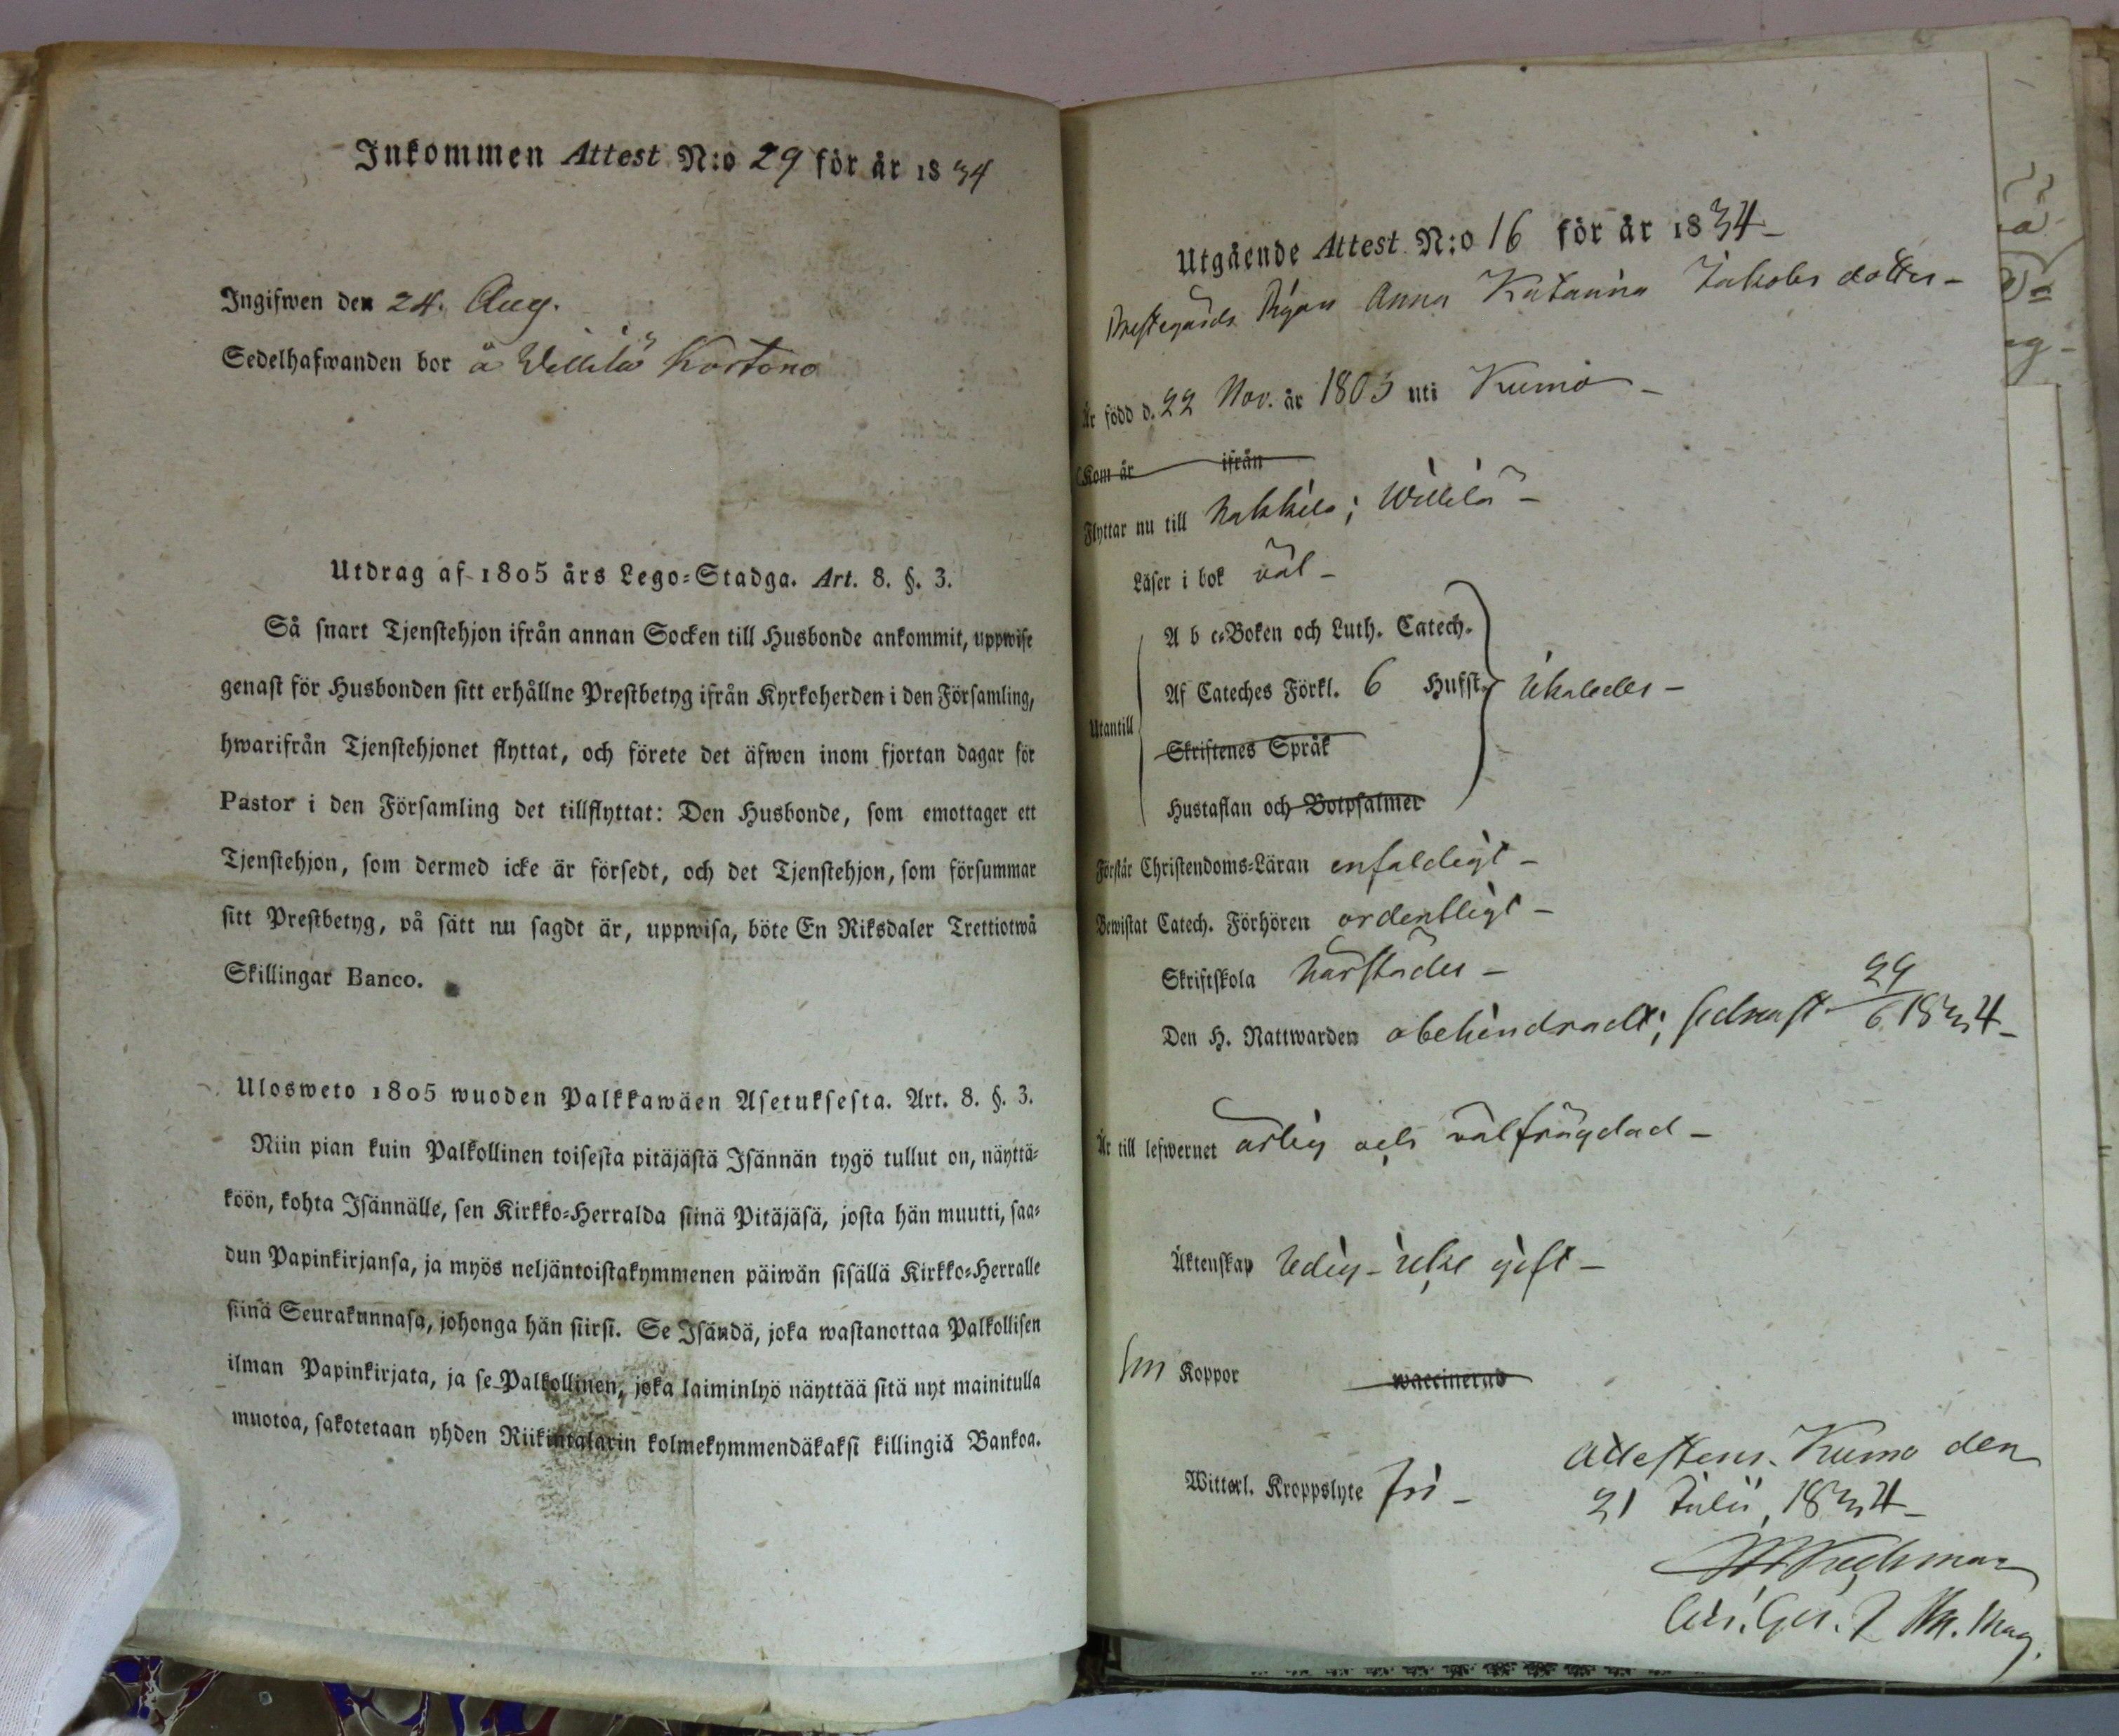 Inkommen Attest N:o 29 för år 1834
Ingifwen den 24. Aug.
Sedelhafwanden bor å Willilä Kortono
Utdrag af 1805 års Lego-Stadga. Art. 8. §. 3.
Så snart Tjenstehjon ifrån annan Socken till Husbonde ankommit, uppwise
genast för Husbonden sitt erhållne Prestbetyg ifrån Kyrkoherden i den Församling,
hwarifrån Tjenstehjonet flyttat, och förete det äfwen inom fjortan dagar för
Pastor i den Församling det tillflyttat: Den Husbonde, som emottager ett
Tjenstehjon, som dermed icke är försedt, och det Tjenstehjon, som försummar
sitt Prestbetyg, på sätt nu sagdt är, uppwisa, böte En Riksdaler Trettiotwå
Skillingar Banco.
Ulosweto 1805 wuoden Palkkawäen Asetuksesta. Art. 8. §. 3.
Niin pian kuin Palkollinen toisesta pitäjästä Isännän tygö tullut on, näyttä-
köön, kohta Isännälle, sen Kirkko-Herralda siinä Pitäjäsä, josta hän muutti, saa-
dun Papinkirjansa, ja myös neljäntoistakymmenen päiwän sisällä Kirkko-Herralle
siinä Seurakunnasa, johonga hän siirsi. Se Isändä, joka wastanottaa Palkollisen
ilman Papinkirjata, ja se Palkollinen, joka laiminlyö näyttää sitä nyt mainitulla
muotoa, sakotetaan yhden Riikintalarin kolmekymmendäkaksi killingiä Bankoa.
Utgående Attest N:o 16 för år 1834
Prestegårds Pigan Anna Katarina Jakobs dotter
Är född d. 22 Nov. år 1803 uti Kumo
Kom år ifrån
Flyttar nu till Nakkila; Willilä
Läser i bok väl
A b c-Boken och Luth. Catech.
Af Cateches Förkl. 6 Hufst.
Utantill
Skriftenes Språk
Hustaflan och Botpsalmer
Förstår Christendoms-Läran enfaldigt
Bewistat Catech. Förhören ordentligt
Skriftskola härstädes
Den H. Nattwarden obehindradt; sednast 29/6 1834
Är till lefwernet ärlig och välfrägdad
Äktenskap ledig - icke gift
Koppor waccinerad
Wittterl. Kroppslyte fri
Attesteras. Kumo den
31 Julii, 1834